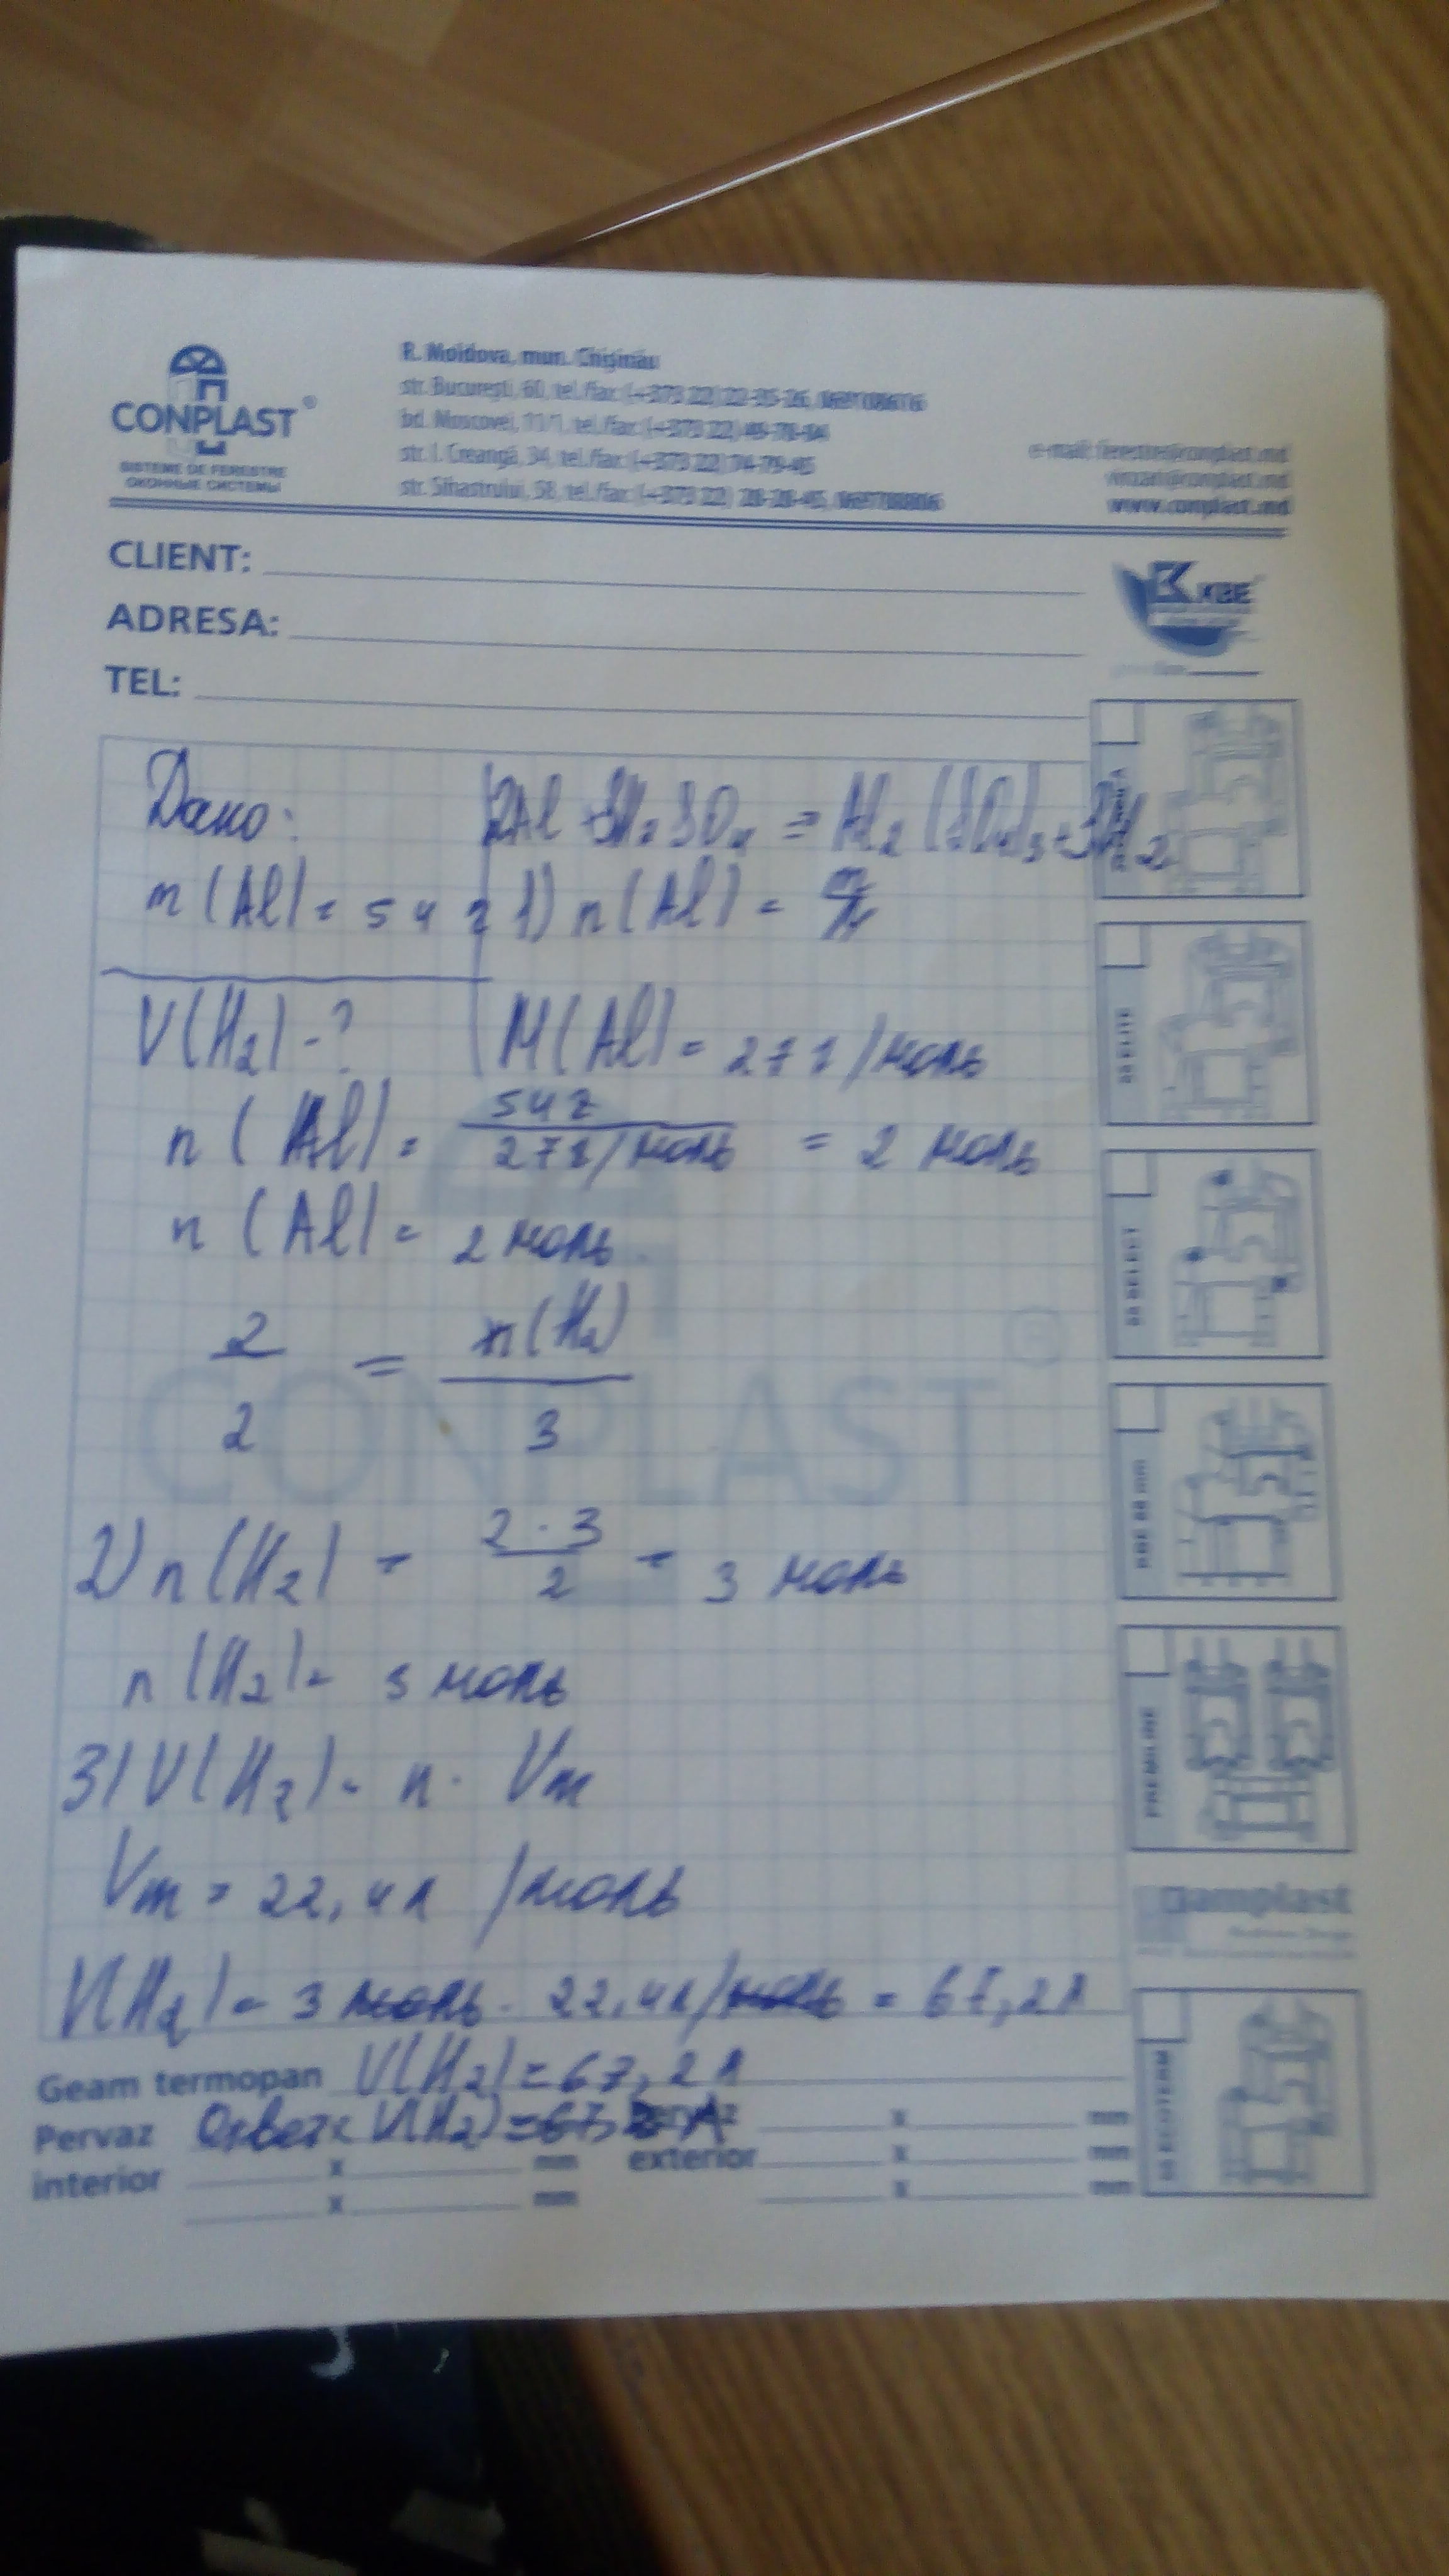 CONPLAST®
SISTEME DE FERESTRE
ОКОННЫЕ СИСТЕМЫ
R. Moldova, mun. Chişinău
str. Bucureşti, 60, tel./fax: (+373 22) 22-35-26,
bd. Moscovei, 11/1, tel./fax: (+373 22) 45-78-84
str. I. Creangă, 34, tel./fax: (+373 22) 74-79-45
str. Sihastrului, 58, tel./fax: (+373 22) 28-28-45,
e-mail: ferestre@conplast.md
vinzari@conplast.md
www.conplast.md
CLIENT:
ADRESA:
TEL:
KBE
Дано: 2Al + 3H2SO4 = Al2(SO4)3 + 3H2
m(Al) = 54 г 1) n(Al) = m/M
V(H2) - ? M(Al) = 27 г/моль
n(Al) = 54 г / 27 г/моль = 2 моль
n(Al) = 2 моль
2/2 = n(H2)/3
CONPLAST®
2) n(H2) = 2 · 3 / 2 = 3 моль
n(H2) = 3 моль
3) V(H2) = n · Vm
Vm = 22,4 л /моль
V(H2) = 3 моль · 22,4 л/моль = 67,2 л
Geam termopan V(H2) = 67,2 л
Pervaz Ответ: V(H2) = 67,2 л
interior x mm exterior x mm
x mm x mm
x mm
SELECT
KBE 88 mm
PREMILINE